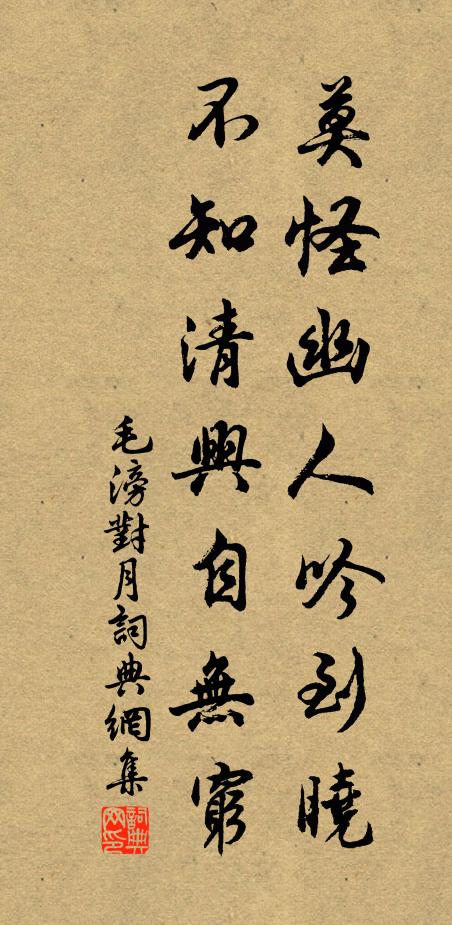 莫怪幽人吟到曉
不知清興自無窮
毛滂對月詞典網集
詞典网印